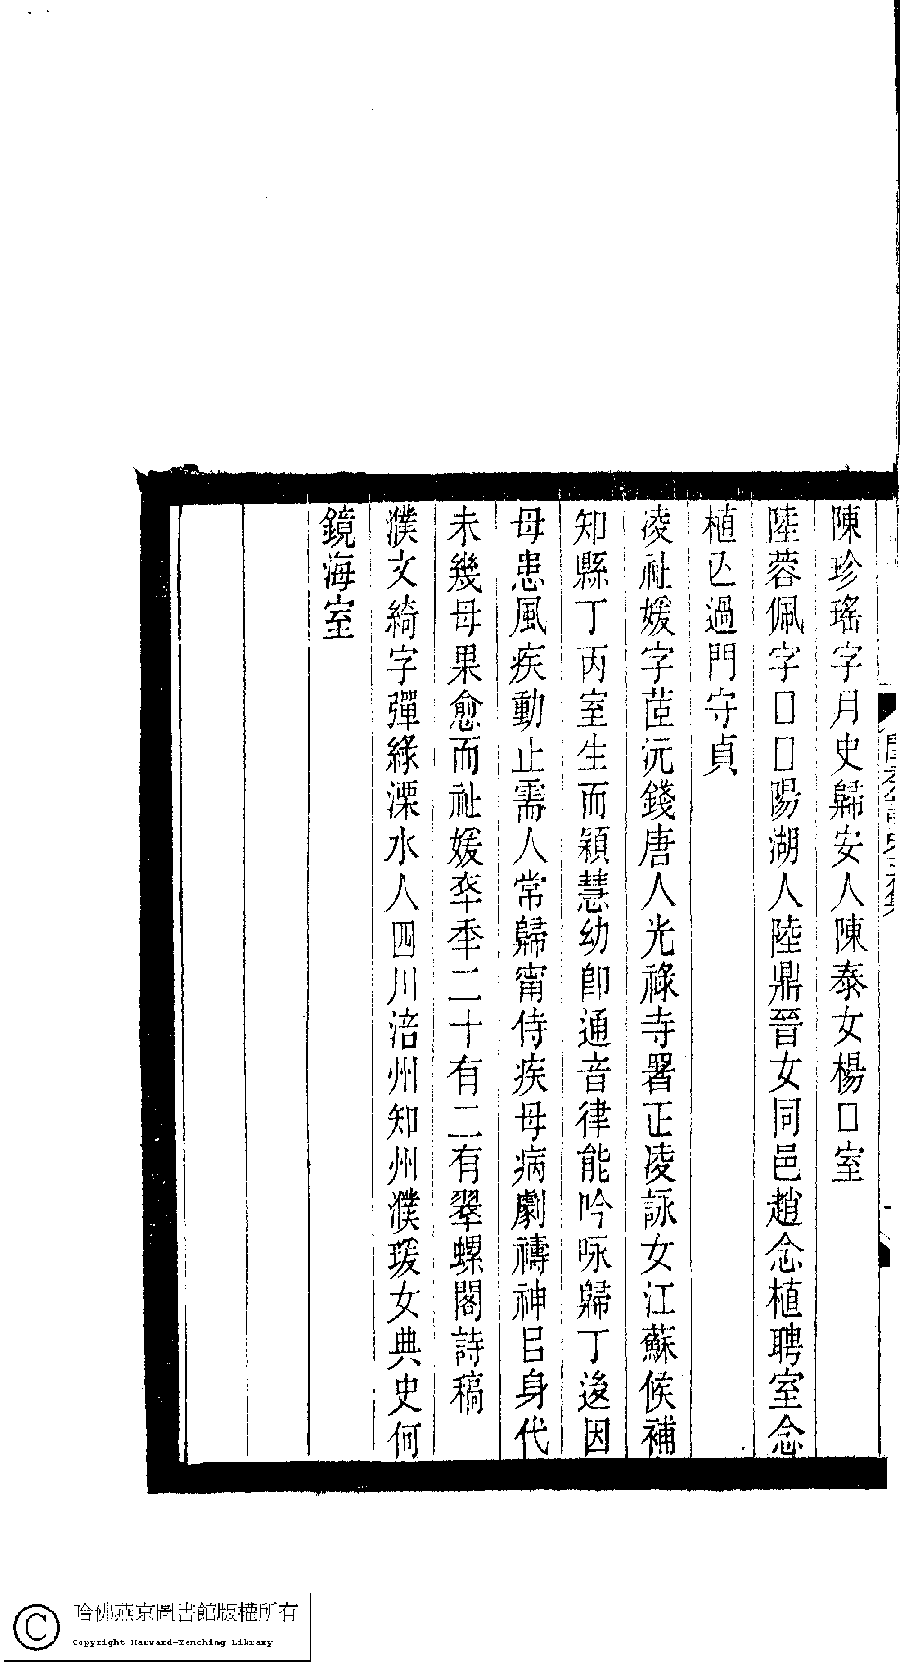 陳珍瑤字月史歸安人陳泰女楊□室
陸蓉佩字□□陽湖人陸鼎晉女同邑趙念植聘室念
植亾過門守貞
凌祉媛字茝沅錢唐人光祿寺署正凌詠女江蘇候補
知縣丁丙室生而穎慧幼卽通音律能吟咏歸丁後因
母患風疾動止需人常歸甯侍疾母病劇禱神㠯身代
未幾母果愈而祉媛卒秊二十有二有翠螺閣詩稿
濮文綺字彈綠溧水人四川涪州知州濮瑗女典史何
鏡海室
哈佛燕京圖書館版權所有
Copyright Harvard-Yenching Library